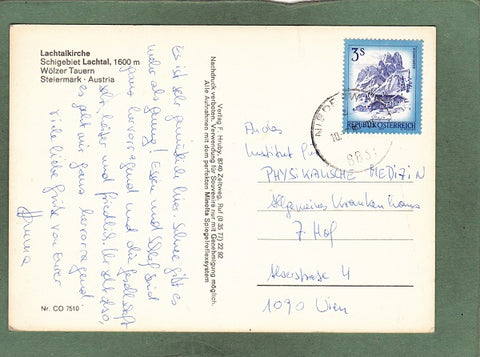 Lachtalkirche
Schigebiet Lachtal, 1600 m
Wölzer Tauern
Steiermark · Austria
Es ist sehr gemütlich hier. Schnee gibt es
mehr als genug! Essen und Schlaf sind
ganz hervorragend und die Gesellschaft
sehr heiter und friedlich. Ihr seht also,
es geht mir ganz hervorragend.
Viele liebe Grüße von Eurer
Nr. CO 7510
Verlag F. Hruby, 8740 Zeltweg, Ruf (0 35 77) 22 92
Nachdruck verboten. Verwendung für Souvenirs nur mit Genehmigung möglich.
Alle Aufnahmen mit dem perfekten Minolta Spiegelreflexsystem
3S
REPUBLIK ÖSTERREICH
8831
An das
Institut für
PHYSIKALISCHE MEDIZIN
Allgemeines Krankenhaus
7. Hof
Alserstraße 4
1090 Wien